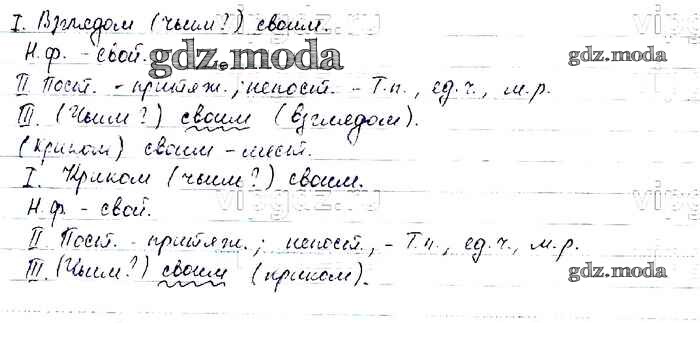 I. Взглядом (чьим?) своим.
Н.ф. - свой.
II Пост. - притяж.; непост. - Т.п., ед.ч., м.р.
III. (Чьим?) своим (взглядом).
(Криком) своим - мест.
I. Криком (чьим?) своим.
Н.ф. - свой.
II Пост. - притяж.; непост., - Т.п., ед.ч., м.р.
III. (Чьим?) своим (криком).
gdz.moda
gdz.moda
gdz.moda
gdz.moda